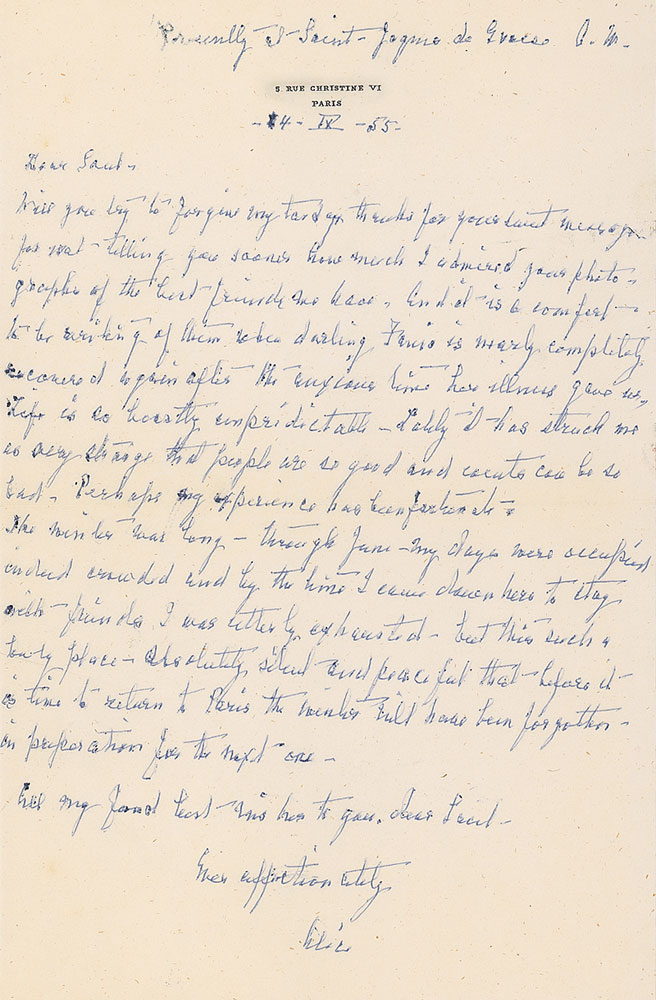 Presently at Saint-Jaques de Grasse A. M.
5. RUE CHRISTINE VI
PARIS
-4- IX -55-
Dear
Will you try to forgive my tardy thanks for your sweet message
for not telling you sooner how much I admired your photo-
graphs of the best friends we have. And it is a comfort
to be writing of them when darling is nearly completely
recovered again after the anxious time her illness gave us.
Life is so beastly unpredictable - Lately it has struck me
as very strange that people are so good and events can be so
bad - Perhaps my experience has been fortunate -
The winter was long - through June - my days were occupied
indeed crowded and by the time I came down here to stay
with friends I was utterly exhausted - but this such a
lovely place - absolutely silent and peaceful that before it
is time to return to Paris the winter will have been forgotten -
in preparation for the next one -
All my fond best wishes to you, dear
Ever affectionately
Alice